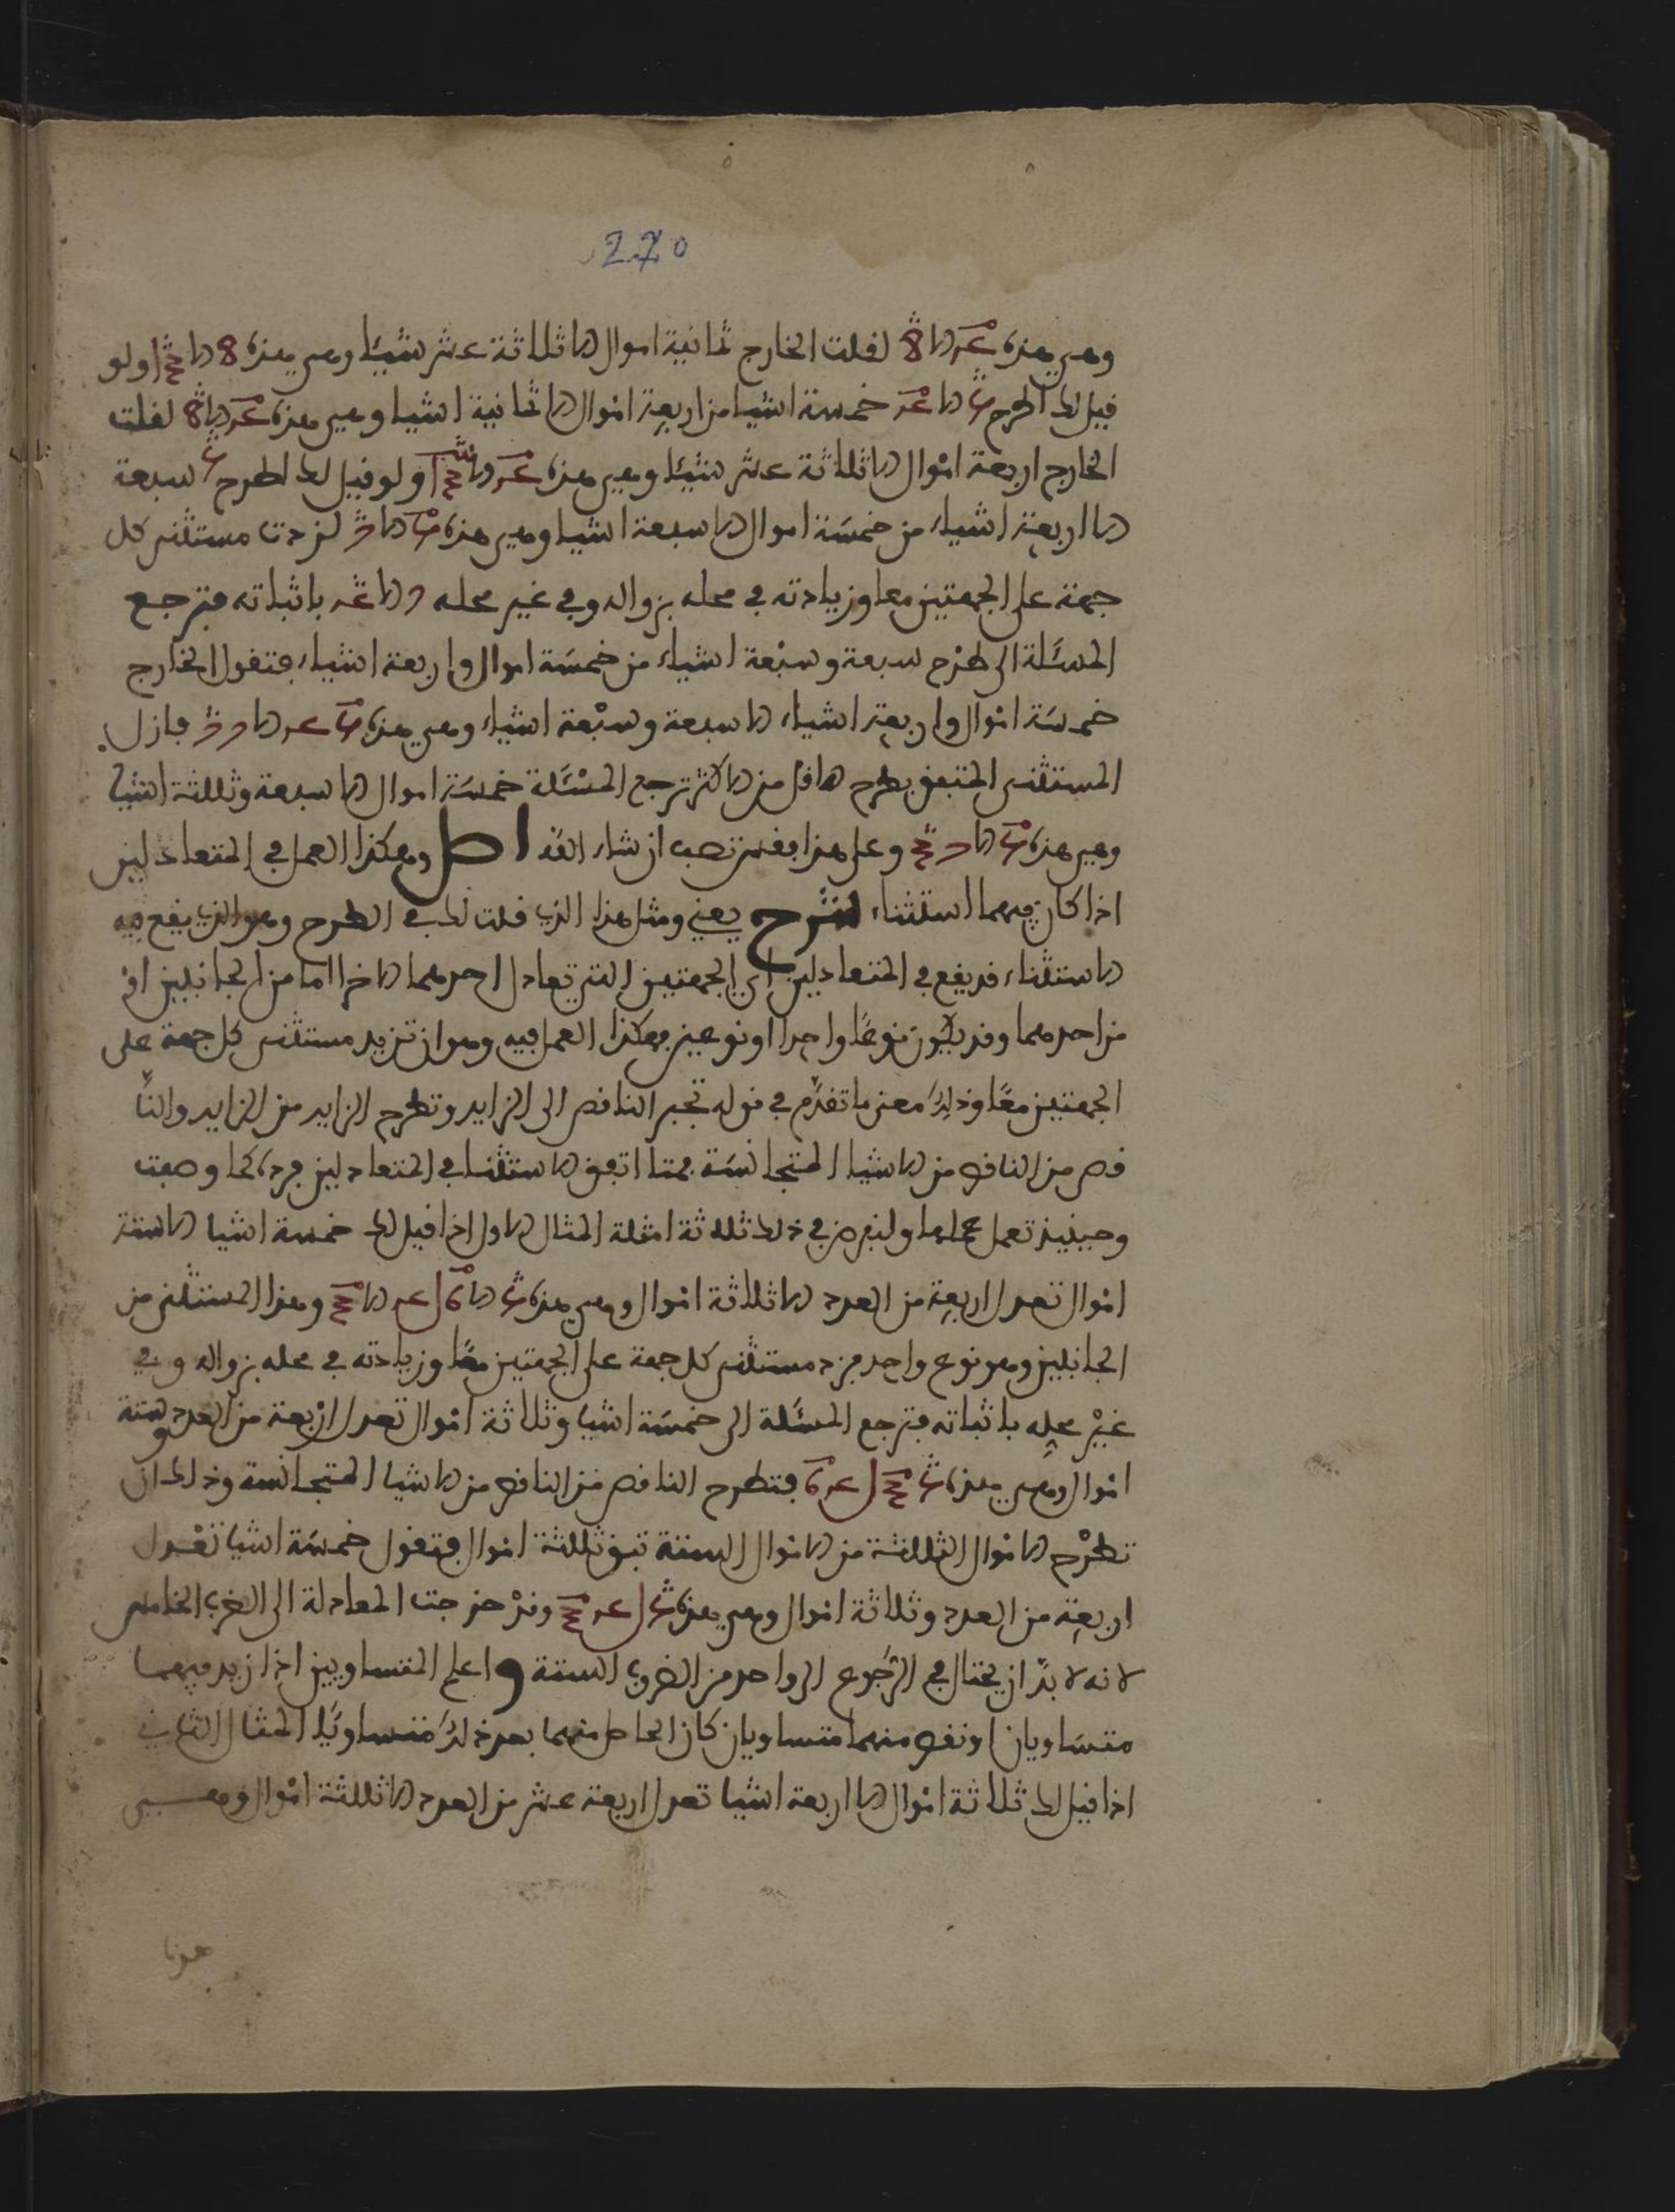 270
وهي هذه لقلت الخارج ثمانية اموال الا ثلاثة عشر شيئا وهي هذه 8 الا اولو
قيل لك اطرح الا خمسة اشيا من اربعة اموال الا ثمانية اشيا وهي هذه لقلت
الخارج اربعة اموال الا ثلاثة عشر شيئا وهي هذه ولو قيل لك اطرح سبعة
الا اربعة اشياء من خمسة اموال الا سبعة اشيا وهي هذه لزدت مستثنى كل
جهة على الجهتين معا وزيادته في محله بزواله وفي غير محله باثباته فترجع
المسئلة الى طرح سبعة وسبعة اشياء من خمسة اموال واربعة اشياء فتقول الخارج
خمسة اموال واربعة اشياء الا سبعة وسبعة اشياء وهي هذه فازل
المستثنى المتفق بطرح الاقل من الاكثر ترجع المسئلة خمسة اموال الا سبعة وثلثة اشيا
وهي هذه وعلى هذا فقس تصب ان شاء الله اصل وهكذا العمل في المتعادلين
اذا كان فيهما استثناء شرح يعني ومثل هذا الذي قلت لك في الطرح وهو الذي يقع فيه
الاستثناء قد يقع في المتعادلين اي الجهتين التي تعادل احدهما الاخر اما من الجانبين او
من احدهما وقد يكون نوعا واحدا او نوعين فهكذا العمل فيه وهو ان تزيد مستثنى كل جهة على
الجهتين معا وذلك معنى ما تقدم في قوله تجبر الناقص الى الزايد وتطرح الزايد من الزايد والنا
قص من الناقص من الاشيا المتجانسة فمتا اتفق الاستثنا في المتعادلين فزده كما وصفت
وحينيذ تعمل عملها ولنفرض في ذلك ثلاثة امثلة المثال الاول اذا قيل لك خمسة اشيا الا ستة
اموال تعدل اربعة من العدد الا ثلاثة اموال وهي هذه وهذا المستثنى من
الجانبين وهو نوع واحد فزد مستثنى كل جهة على الجهتين معا وزيادته في محله بزواله وفي
غير محله باثباته فترجع المسئلة الى خمسة اشيا وثلاثة اموال تعدل اربعة من العدد وستة
اموال وهي هذه فتطرح الناقص من الناقص من الاشيا المتجانسة وذلك ان
تطرح الاموال الثلثة من الاموال الستة تبق ثلثة اموال فتقول خمسة اشيا تعدل
اربعة من العدد وثلاثة اموال وهي هذه وقد خرجت المعادلة الى الضرب الخامس
لانه لا بد ان يحتال في الرجوع الى واحد من الضروب الستة واعلم المتساويين اذا زيد فيهما
متساويان او نقص منهما متساويان كان الحاصل منهما بعد ذلك متساويا المثال الثاني
اذا قيل لك ثلاثة اموال الا اربعة اشيا تعدل اربعة عشر من العدد الا ثلثة اموال وهي
هذا